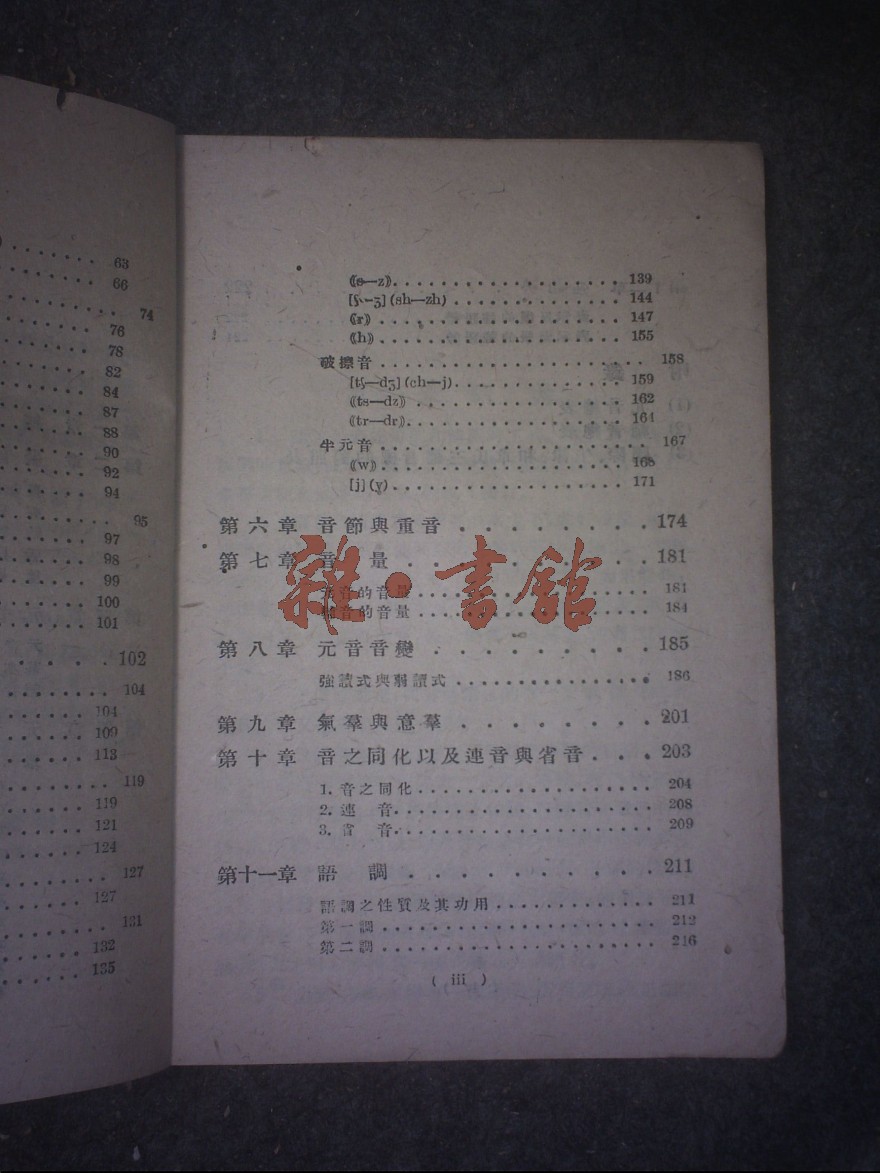 63
66
74
76
78
82
84
87
88
90
92
94
95
97
98
99
100
101
102
104
104
109
113
119
119
121
124
127
127
131
132
135
⟪s—z⟫ 139
[ʃ—ʒ] (sh—zh) 144
⟪r⟫ 147
⟪h⟫ 155
破擦音 158
[tʃ—dʒ] (ch—j) 159
⟪ts—dz⟫ 162
⟪tr—dr⟫ 164
半元音 167
⟪w⟫ 168
[j] (y) 171
第六章 音節與重音 174
第七章 音量 181
音的音量 181
音的音量 184
雜·書館
第八章 元音音變 185
強讀式與弱讀式 186
第九章 氣羣與意羣 201
第十章 音之同化以及連音與省音 203
1. 音之同化 204
2. 連音 208
3. 省音 209
第十一章 語調 211
語調之性質及其功用 211
第一調 212
第二調 216
( iii )